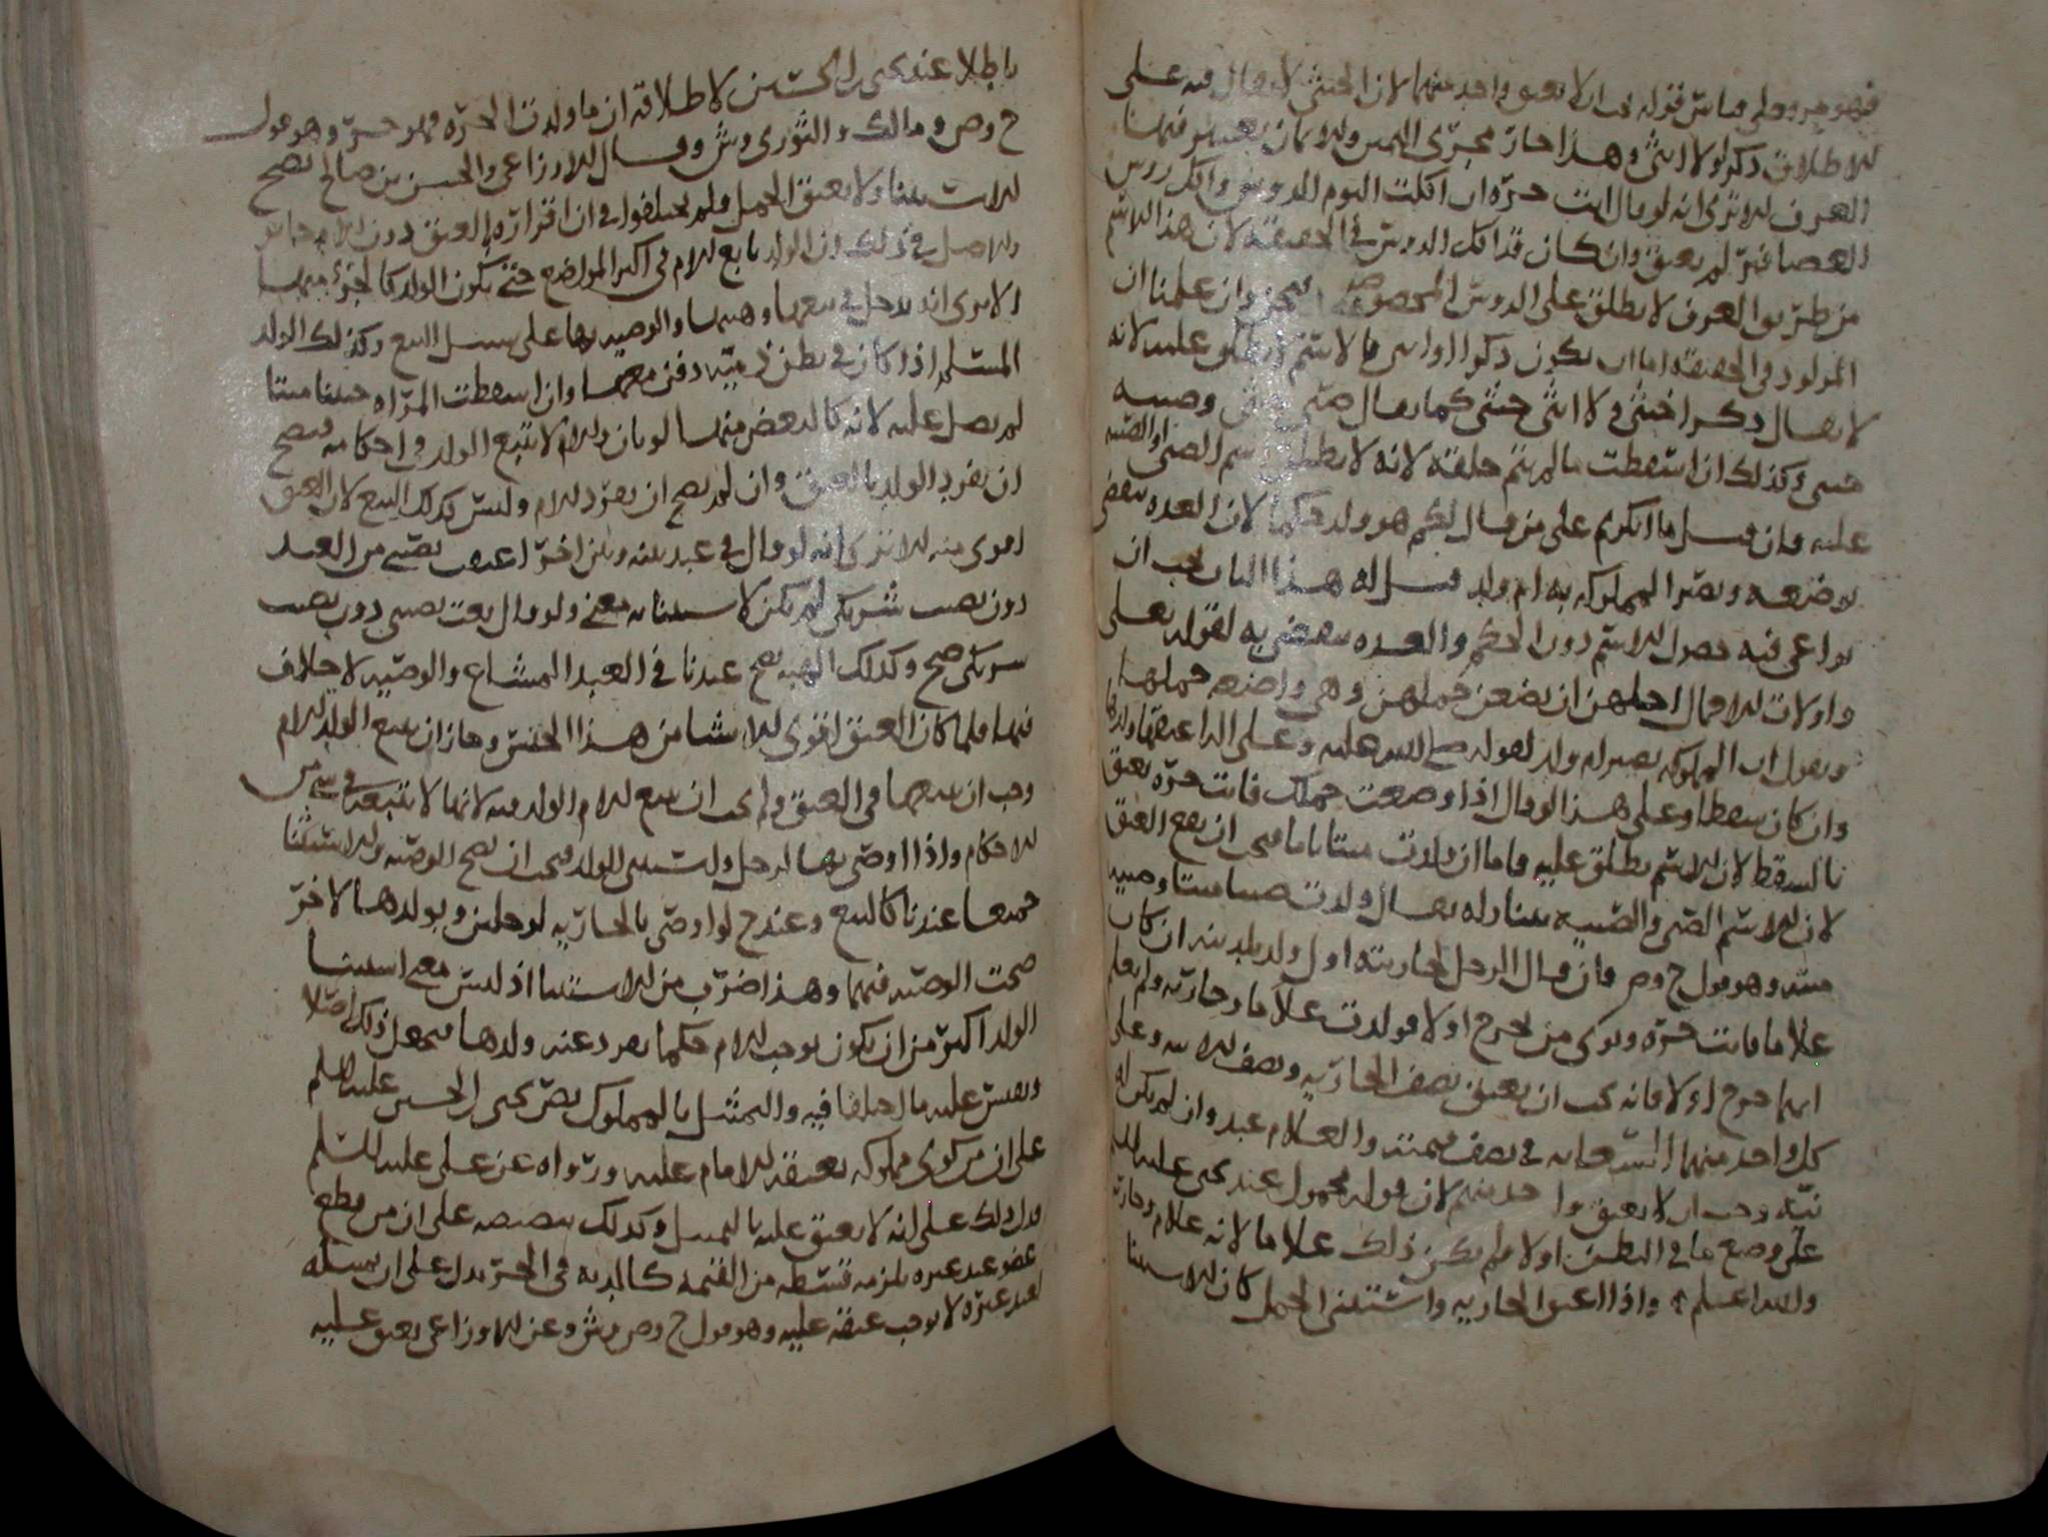 فهو حر وعلى قياس قوله يجب ان لا يعتق واحد منهما لان الخنثى لا يقال فيه على
الاطلاق ذكر ولا انثى وهذا جار مجرى اليمين والايمان يعتبر فيها
العرف الا ترى انه لو قال انت حرة ان اكلت اليوم الدوس واكل روس
العصافير لم يعتق وان كان قد اكل الروس في الحقيقة لان هذا الاسم
من طريق العرف لا يطلق على الروس المخصوصة وان علمنا ان
المولود في الحقيقة اما ان يكون ذكرا او انثى فالاسم لا يطلق عليه لانه
لا يقال ذكر اخنثى ولا انثى خنثى كما يقال صبي خنثى وصبية
خنثى وكذلك ان اسقطت ما لم يتم خلقته لانه لا يطلق اسم الصبي او الصبية
عليه فان قيل ما انكرتم على من قال لكم هو ولد حكما لان العدة تنقضي
بوضعه وتصير المملوكة به ام ولد قيل له هذا الباب يجب ان
يراعى فيه حصول الاسم دون الحكم والعدة تنقضي به لقوله تعالى
واولات الاحمال اجلهن ان يضعن حملهن وهي واضعة حملها
ونقول ان المملوكة تصير ام ولد لقوله صلى الله عليه وعلى اله اعتقها ولدها
وان كان سقطا وعلى هذا لو قال اذا وضعت حملك فانت حرة تعتق
بالسقط لان الاسم يطلق عليه فاما ان ولدت ميتا تاما فيجب ان يقع العتق
لان الاسم الصبي والصبية يتناوله يقال ولدت صبيا ميتا وصبية
ميتة وهو قول ح وص وان قال الرجل لجاريته اول ولد تلدينه ان كان
غلاما فانت حرة ونوى من يخرج اولا فولدت غلاما وجارية ولم يعلم
ايهما خرج اولا فانه يجب ان يعتق نصف الجارية ونصف الابنة وعلى
كل واحد منهما السعاية في نصف قيمته والغلام عبد وان لم يكن له
نية وجب ان لا يعتق واحد منهم لان قوله محمول عند يحيى عليه السلم
على وضع ما في البطن اولا فلم يكن ذلك غلاما لانه غلام وجارية
والله اعلم واذا اعتق الجارية واستثنى الحمل كان الاستثنا
باطلا عند يحيى بن الحسين لاطلاقه ان ما ولدت الحرة فهو حر وهو قول
ح وص ومالك والثوري وش وقال الاوزاعي والحسن بن صالح يصح
الاستثنا ولا يعتق الحمل ولم يختلفوا في ان افراده بالعتق دون الام جائز
والاصل في ذلك ان الولد تابع للام في اكثر المواضع حتى يكون الولد كالجزء منها
الا ترى انه يدخل في بيعها وهبتها والوصية بها على سبيل التبع وكذلك الولد
المسلم اذا كان في بطن ذمية دفن معها وان اسقطت المراة جنينا ميتا
لم يصل عليه لانه كالبعض منها لو بان والام لا تتبع الولد في احكامه فيصح
ان يفرد الولد بالعتق وان لم يصح ان يفرد الام وليس كذلك البيع لان العتق
اقوى منه الا ترى انه لو قال في عبد بينه وبين اخر اعتقت نصيبي من العبد
دون نصيب شريكي لم يكن لاستثنائه معنى ولو قال بعت نصيبي دون نصيب
شريكي صح وكذلك الهبة تصح عندنا في العبد المشاع والوصية لا خلاف
فيها فلما كان العتق اقوى الاشيا من هذا الجنس وجاز ان يتبع الولد الام
وجب ان يتبعها في العتق ولم يجب ان يتبع الام الولد فيه لانها لا تتبعه في شي من
الاحكام واذا اوصى بها لرجل واستثنى الولد فيجب ان تصح الوصية والاستثنا
جميعا عندنا كالبيع وعند ح لو اوصى بالجارية لرجلين وبولدها لاخر
صحت الوصية فيهما وهذا ضرب من الاستثنا اذ ليس معنى استثنا
الولد اكثر من ان يكون يوجب للام حكما يفرد عنه ولدها فيجعل ذلك اصلا
ونقيس عليه ما اختلفنا فيه والتمثيل بالمملوك نص يحيى بن الحسين عليه السلم
على ان من كوى مملوكه يعتقه الامام عليه ورواه عن علي عليه السلم
فدل ذلك على انه لا يعتق عليه بالتمثيل وكذلك تنصيصه على ان من قطع
عضو عبد غيره يلزمه قسطه من القيمة كالدية في الحر يدل على ان تمثيله
لعبد غيره لا يوجب عتقه عليه وهو قول ح وص وش وعن الاوزاعي يعتق عليه